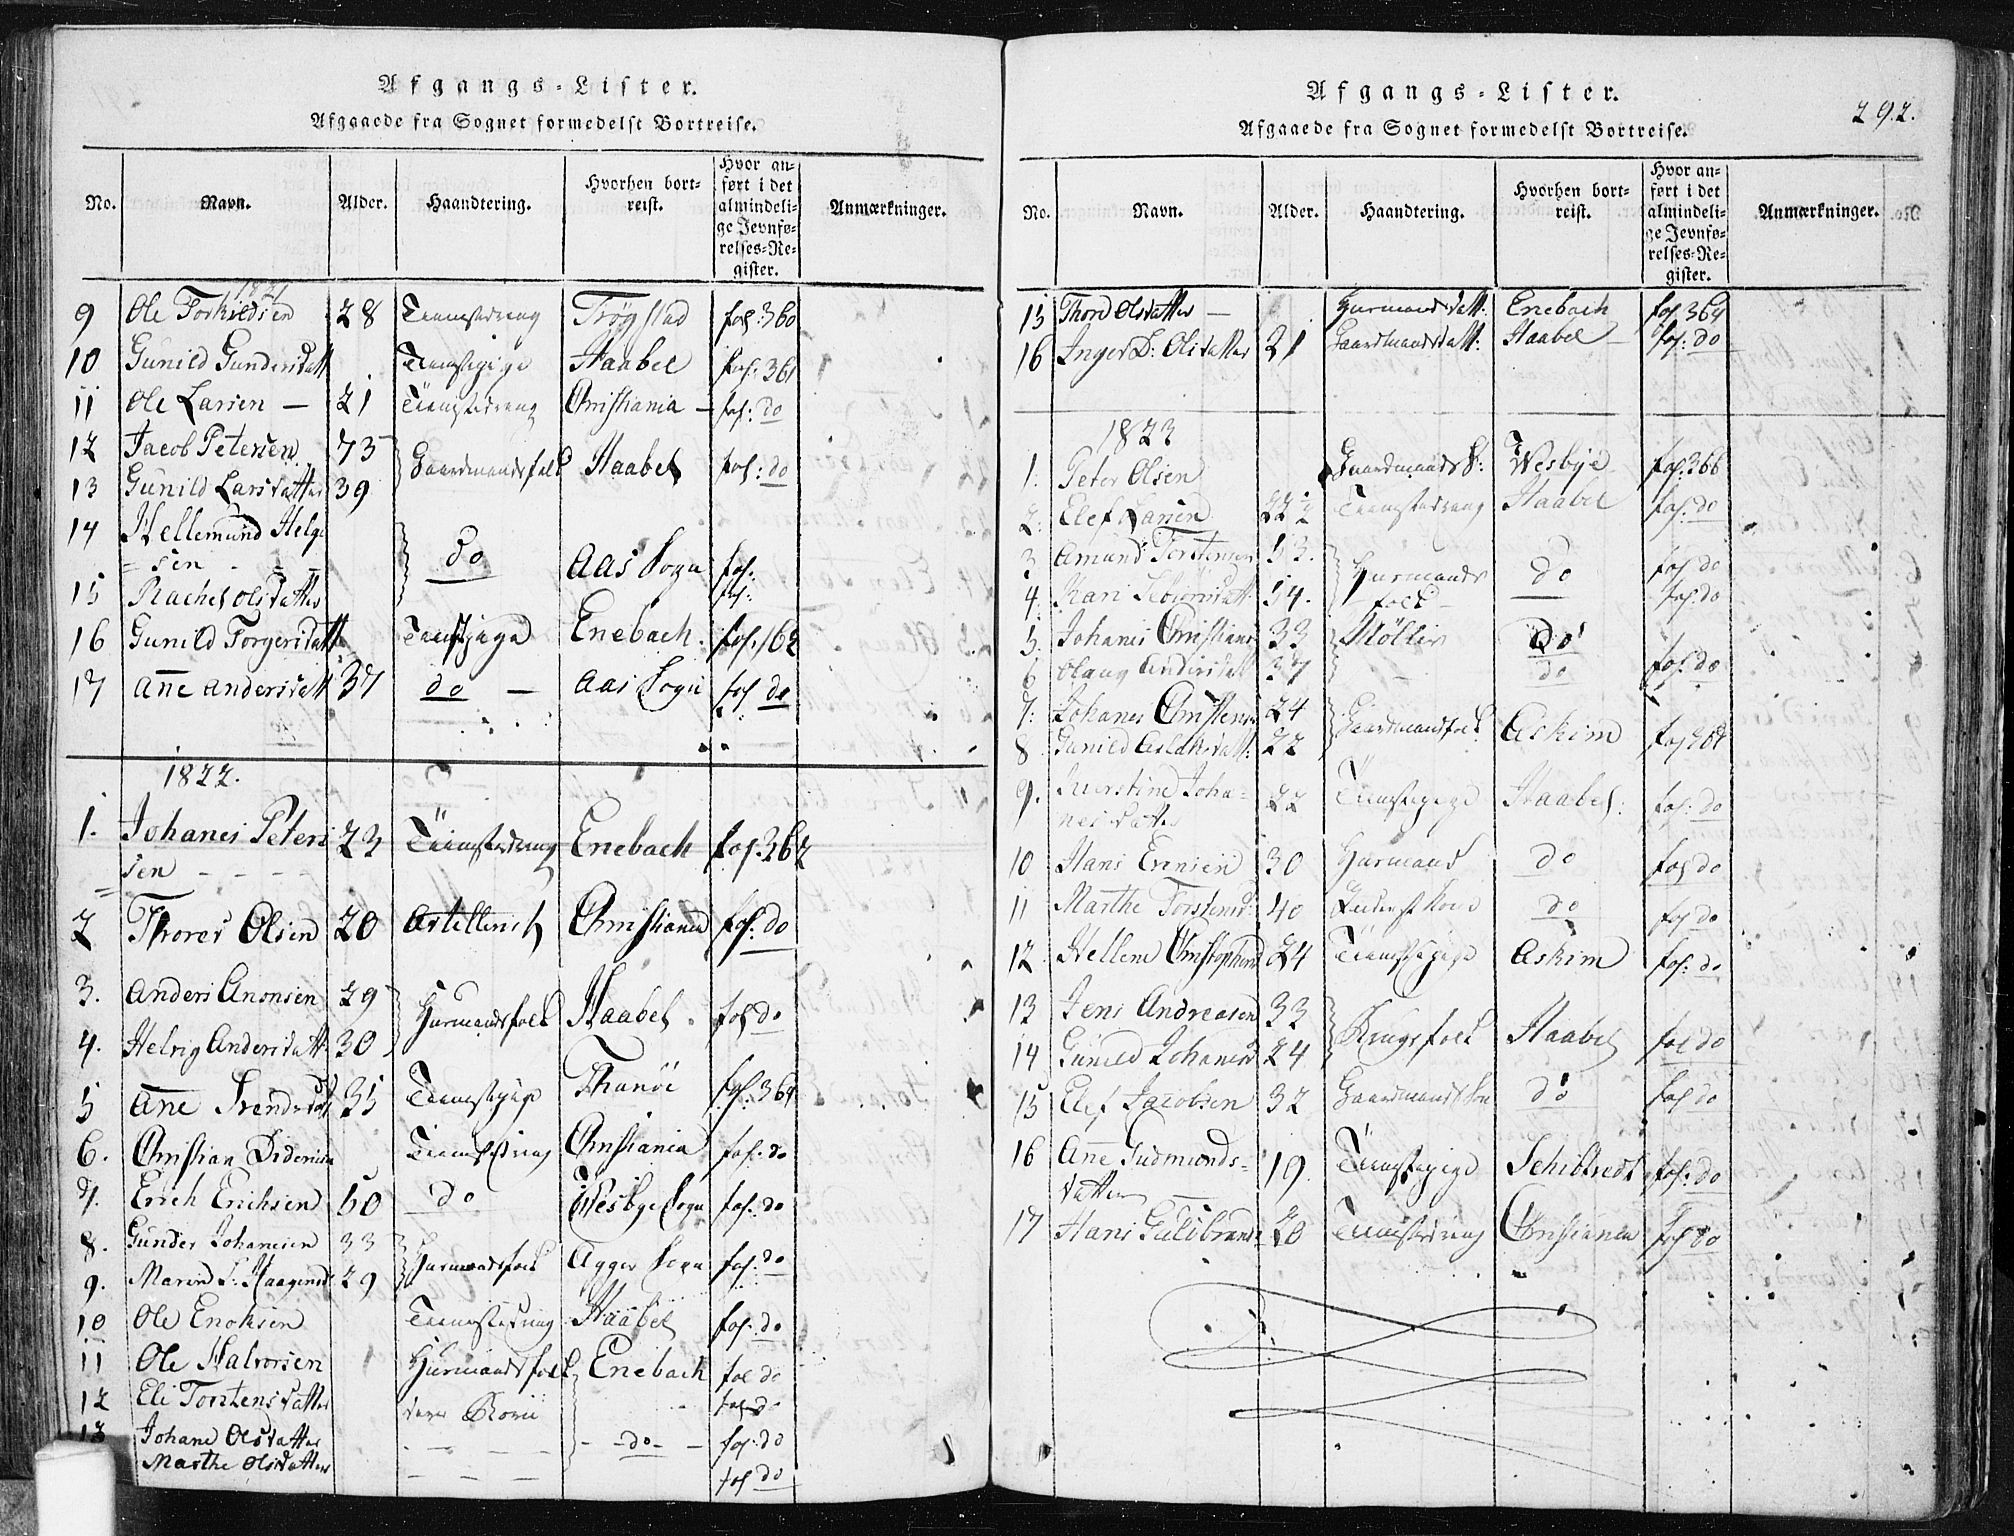 Afgangs-Lister.
Afgaaede fra Sognet formedelst Bortreise.
No. Navn. Alder. Haandtering. Hvorhen bortreist. Hvor anført i det almindelige Jevnførelses-Register. Anmærkninger.
1821
9 Ole Torkildsen 28 Tienestedreng Trøgstad fol: 360
10 Gunild Gundersdatt Tienestepige Haabel fol: 361
11 Ole Larsen — 21 Tienestedreng Christiania — fol: do
12 Jacob Petersen 73 Gaardmandsfolk Haabel fol: do
13 Gunild Larsdatter 39
14 Hellemund Helge
= sen do Aas Sogn fol:
15 Rachel Olsdatter fol:
16 Gunild Torgersdatt Tienstepige Enebach. fol. 162
17 Ane Andersdatt 37 do — Aas Sogn fol do
1822.
1. Johanes Peters
sen 23 Tienestedreng Enebach fol. 362
2 Thores Olsen 20 Artellerist Christiania fol: do
3. Anders Anonsen 29 Husmandsfolk Haabel fol do
4. Helvig Andersdatt 30
5 Ane Svendsdatt 35 Tienestepige fol: 364
6. Christian Didericsen Tienestedreng Christiania fol. do
7. Errich Erichsen 50 do Wesbye Sogn fol. do
8. Gunder Johanesen 33 Husmandsfolk Agger Sogn fol. do
9. Maren S: Haagensd 29
10 Ole Enoksen Tienestedreng Haabel fol. do
11 Ole Halvorsen Husmandsfolk Enebach fol do
12 Eli Torstensdatter fol do
13 Johane Olsdatter — do — fol. do
Marthe Olsdatter fol do
292.
Afgangs-Lister.
Afgaaede fra Sognet formedelst Bortreise.
No. Navn. Alder. Haandtering. Hvorhen bortreist. Hvor anført i det almindelige Jevnførelses-Register. Anmærkninger.
15 Thord Olsdatter — Husmandsdatt: Enebach fol 364
16 Inger D: Olsdatter 31 Gaardmandsdatt: Haabel fol: do
1823
1. Peter Olsen Gaardmands S: Wesbye fol. 366
2. Elef Larsen 22 ½ Tienestedreng Haabel fol. do
3 Amund Torstensen 53. Husmands do fol do
4. Kari 54. folk fol. do
5. Johanes Christians 33 Møller do
6 Olaug Andersdatt 37 do fol. do
7. Johanes Christens 24 Gaardmandsfolk Askim fol 364
8 Gunild Aslaksdatt: 22
9. Kierstine Joha=
nesdatter 22 Tienestepige Haabel. fol. do
10 Hans Evensen 30 Husmand do fol do
11 Marthe Torstensd 40 do fol do
12. Hellene Christophersd 24 Tienestepige Askim fol. do
13 Jens Andreasen 33 Brugsfolk Haabel fol do
14 Gunild Johanesd 24
15 Elef Jacobsen 32 Gaardmandssøn do fol do
16 Ane Gudmunds=
datter 19. Tienestepige Schibtvedt fol: do
17 Hans Guldbrands 20 Tienestedreng Christiania fol do